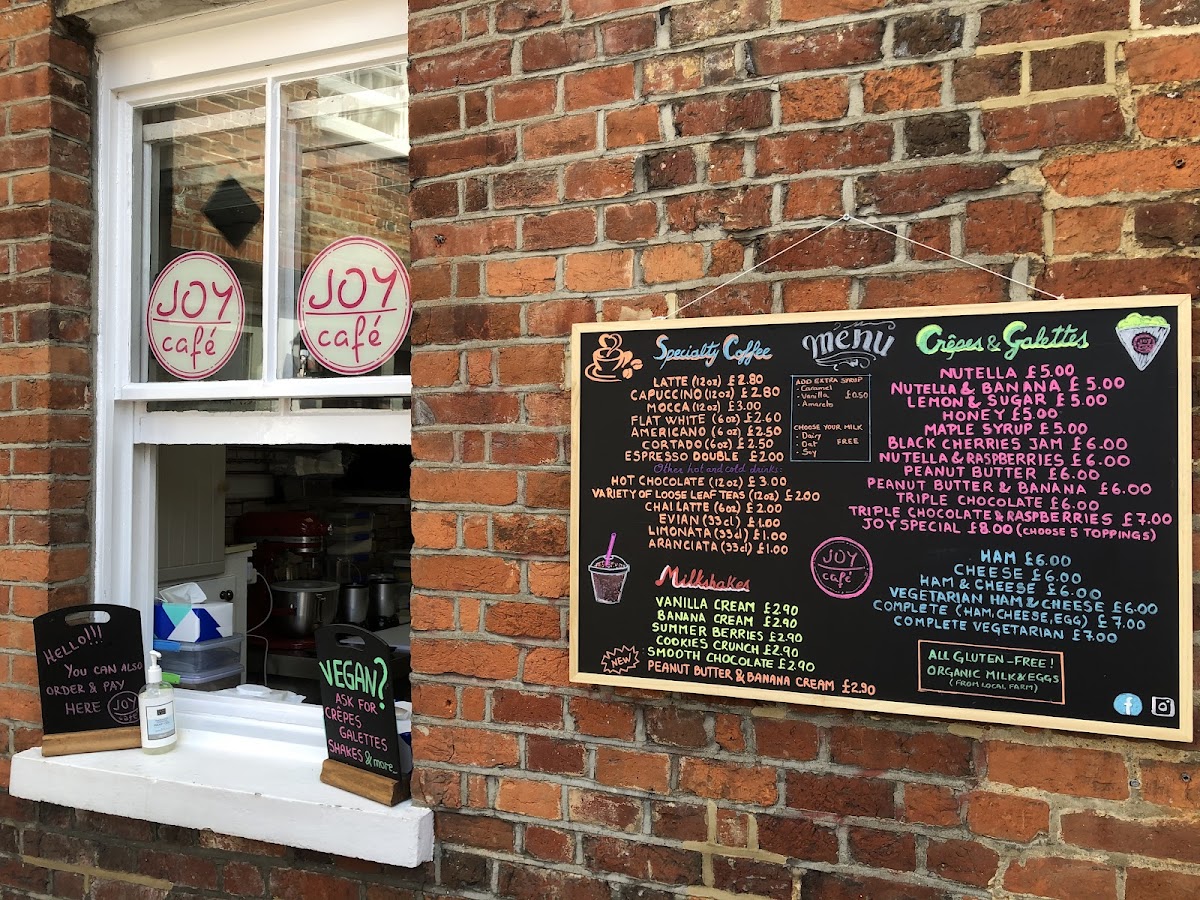 JOY
café
JOY
café
HELLO!!!
YOU CAN ALSO
ORDER & PAY
HERE
JOY
café
VEGAN?
ASK FOR
CRÊPES
GALETTES
SHAKES & more
Menu
Specialty Coffee
LATTE (12oz) £2.80
CAPUCCINO (12oz) £2.80
MOCCA (12oz) £3.00
FLAT WHITE (6oz) £2.60
AMERICANO (6oz) £2.50
CORTADO (6oz) £2.50
ESPRESSO DOUBLE £2.00
Other hot and cold drinks:
HOT CHOCOLATE (12oz) £3.00
VARIETY OF LOOSE LEAF TEAS (12oz) £2.00
CHAI LATTE (6oz) £2.00
EVIAN (33cl) £1.00
LIMONATA (33cl) £1.00
ARANCIATA (33cl) £1.00
Milkshakes
VANILLA CREAM £2.90
BANANA CREAM £2.90
SUMMER BERRIES £2.90
COOKIES CRUNCH £2.90
SMOOTH CHOCOLATE £2.90
NEW PEANUT BUTTER & BANANA CREAM £2.90
ADD EXTRA SYRUP
- Caramel
- Vanilla £0.50
- Amareto
CHOOSE YOUR MILK
- Dairy
- Oat FREE
- Soy
Crêpes & Galettes
JOY
NUTELLA £5.00
NUTELLA & BANANA £5.00
LEMON & SUGAR £5.00
HONEY £5.00
MAPLE SYRUP £5.00
BLACK CHERRIES JAM £6.00
NUTELLA & RASPBERRIES £6.00
PEANUT BUTTER £6.00
PEANUT BUTTER & BANANA £6.00
TRIPLE CHOCOLATE £6.00
TRIPLE CHOCOLATE & RASPBERRIES £7.00
JOY SPECIAL £8.00 (CHOOSE 5 TOPPINGS)
JOY
café
HAM £6.00
CHEESE £6.00
HAM & CHEESE £6.00
VEGETARIAN HAM & CHEESE £6.00
COMPLETE (HAM, CHEESE, EGG) £7.00
COMPLETE VEGETARIAN £7.00
ALL GLUTEN-FREE!
ORGANIC MILK & EGGS
(FROM LOCAL FARM)
f